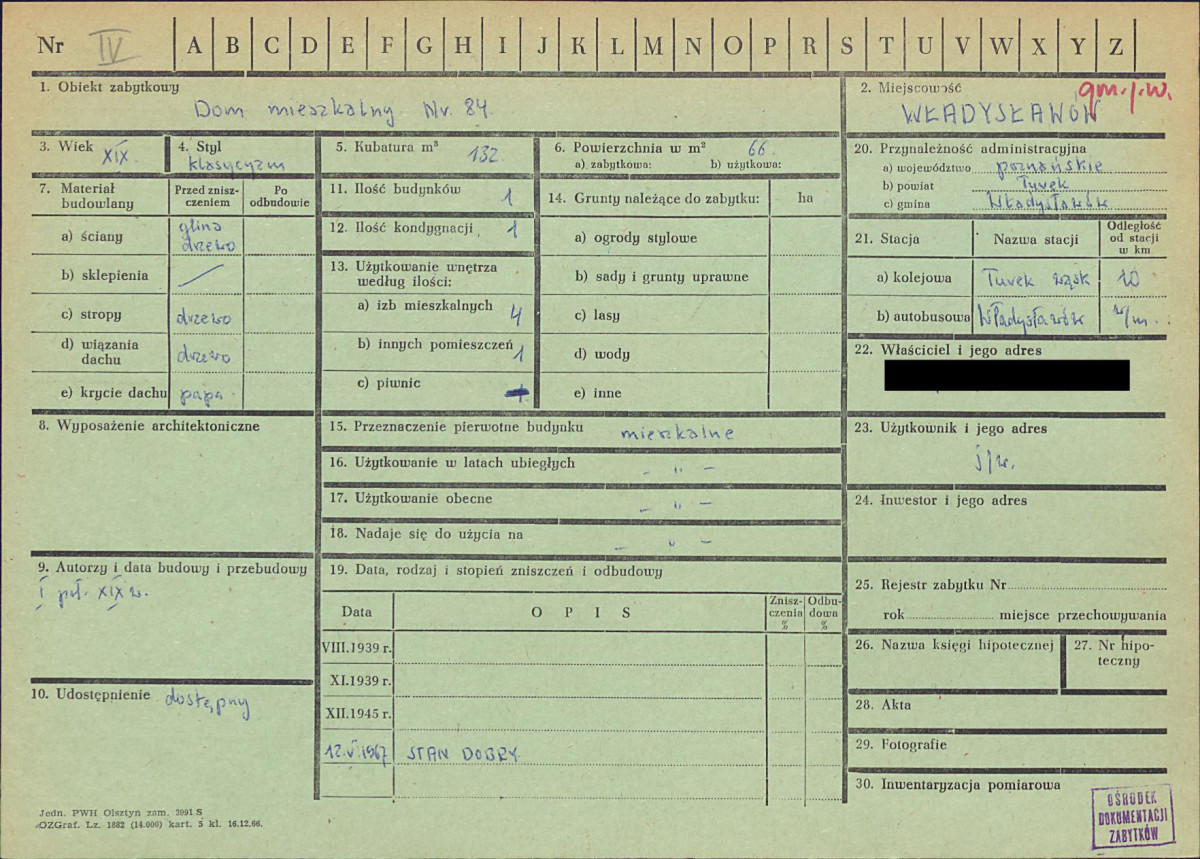 Nr IV A B C D E F G H I J K L M N O P R S T U V W X Y Z
1. Obiekt zabytkowy
Dom mieszkalny Nr. 84.
2. Miejscowość
gm. j.w.
WŁADYSŁAWÓW
3. Wiek XIX
4. Styl klasycyzm
5. Kubatura m³ 132
6. Powierzchnia w m² 66
a) zabytkowa: b) użytkowa:
20. Przynależność administracyjna
a) województwo poznańskie
b) powiat Turek
c) gmina Władysławów
7. Materiał budowlany
Przed zniszczeniem
Po odbudowie
a) ściany glina drzewo
b) sklepienia
c) stropy drzewo
d) wiązania dachu drzewo
e) krycie dachu papa
11. Ilość budynków 1
12. Ilość kondygnacji 1
13. Użytkowanie wnętrza według ilości:
a) izb mieszkalnych 4
b) innych pomieszczeń 1
c) piwnic
14. Grunty należące do zabytku: ha
a) ogrody stylowe
b) sady i grunty uprawne
c) lasy
d) wody
e) inne
21. Stacja Nazwa stacji Odległość od stacji w km
a) kolejowa Turek wąsk 10
b) autobusowa Władysławów w/m.
22. Właściciel i jego adres
8. Wyposażenie architektoniczne
15. Przeznaczenie pierwotne budynku mieszkalne
16. Użytkowanie w latach ubiegłych - " -
17. Użytkowanie obecne - " -
18. Nadaje się do użycia na - " -
23. Użytkownik i jego adres
j/w.
24. Inwestor i jego adres
9. Autorzy i data budowy i przebudowy
I poł. XIX w.
10. Udostępnienie dostępny
19. Data, rodzaj i stopień zniszczeń i odbudowy
Data OPIS Zniszczenia % Odbudowa %
VIII.1939 r.
XI.1939 r.
XII.1945 r.
12.V.1967 STAN DOBRY.
25. Rejestr zabytku Nr
rok miejsce przechowywania
26. Nazwa księgi hipotecznej
27. Nr hipoteczny
28. Akta
29. Fotografie
30. Inwentaryzacja pomiarowa
Jedn. PWH Olsztyn zam. 3991 S
OZGraf. Lz. 1882 (14.000) kart. 5 kl. 16.12.66.
OŚRODEK
DOKUMENTACJI
ZABYTKÓW